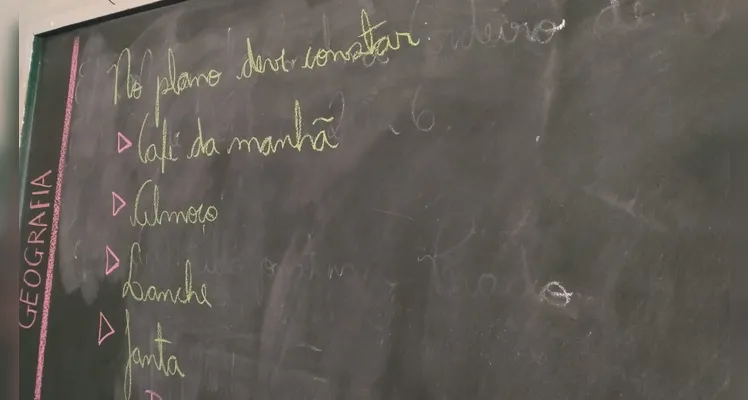 GEOGRAFIA
No plano deve constar:
Café da manhã
Almoço
Lanche
Janta